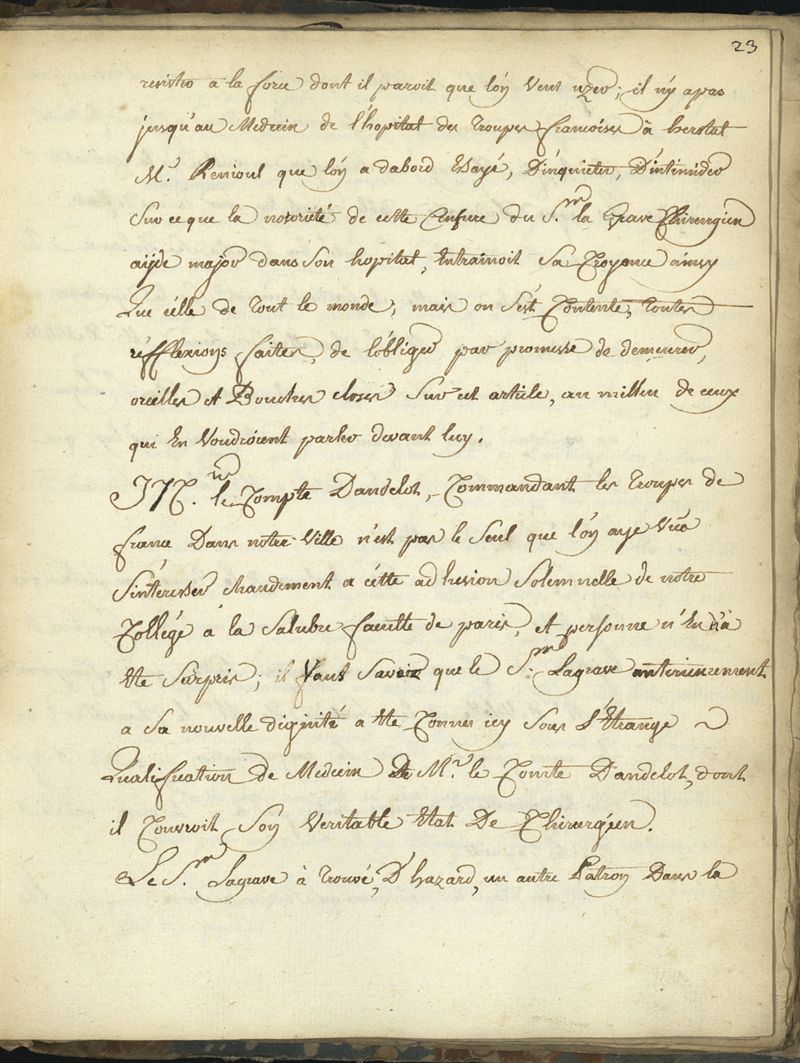 23
resistro a la force dont il paroit que lóy veut uzer; il ny a pas
jusqu'au Medecin de l'hopital des troupes francoises à herstal
M.r Renioul que lóy a dabord Essayé, D'inquieter, D'intimider
Sur ce que la notoriété de cette Censure du S.r la Grave Chirurgien
aijde major dans son hopital, Entrainoit Sa Croyance ainsy
Que célle de tout le monde; mais on s'ést Contenté, toutes
réfflexions faites, de lóbliger par promesse de demeurer,
oreilles et Bouches closes sur cet article, au millieu de ceux
qui En Voudroient parler devant luy.
le Compte Dandelot, Commandant les troupes de
france Dans notre Ville n'est pas le Seul que lóy aye Vúa
S'intéresser chaudement a cétte adhesion Solemnelle de notre
Collége à la Salubre faculte de paris, et personne n'En n'a
Eté Surpris; il faut Savoir que le S.r Lagrave anterieurement
a Sa nouvelle dignité a Eté Connus icy Sous L'Etrange
Qualification de Medecin De M.r le Comte Dandelot, dont
il Couvroit Soy Veritable Etat De Chirurgien.
Le S.r Lagrave à trouvé, D'hazard, un autre Patroy Dans la